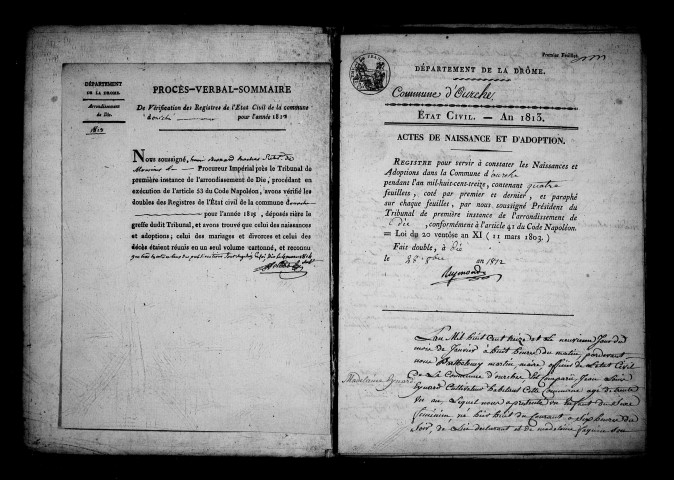 DÉPARTEMENT
DE LA DRÔME.
Arrondissement
de Die.
1813
PROCÈS-VERBAL-SOMMAIRE
De Vérification des Registres de l'État Civil de la commune
pour l'année 1813
Nous soussigné,
Procureur Impérial près le Tribunal de
première instance de l'arrondissement de Die, procédant en
exécution de l'article 53 du Code Napoléon, avons vérifié les
doubles des Registres de l'État civil de la commune
pour l'année 1813, déposés rière le
greffe dudit Tribunal, et avons trouvé que celui des naissances
et adoptions; celui des mariages et divorces et celui des
décès étaient réunis en un seul volume cartonné, et reconnu
Premier Feuillet
DÉPARTEMENT DE LA DRÔME.
Commune d'Ourche
ÉTAT CIVIL. — AN 1813.
ACTES DE NAISSANCE ET D'ADOPTION.
REGISTRE pour servir à constater les Naissances et
Adoptions dans la Commune d'ourche
pendant l'an mil-huit-cent-treize, contenant quatre
feuillets, coté par premier et dernier, et paraphé
sur chaque feuillet, par nous soussigné Président du
Tribunal de première instance de l'arrondissement de
Die, conformément à l'article 41 du Code Napoléon.
= Loi du 20 ventôse an XI (11 mars 1803.)
Fait double, à Die
le 28 an 1812
Reymond
L'an Mil huit Cent treize et Le neuvieme Jour du
mois de Janvier à huit heures du matin, pardevant
nous Barthelemy martin, maire officier de l'état Civil
De La Commune d'ourche Est Comparu Jean Louis
Madelaine Eynard
Eynard Cultivateur habitant Cette Commune agé de trente
un an Lequel nous a présenté un Enfant du Sexe
féminin né huit du Courant a Six heures du
Soir, de Lui declarant et de madelaine